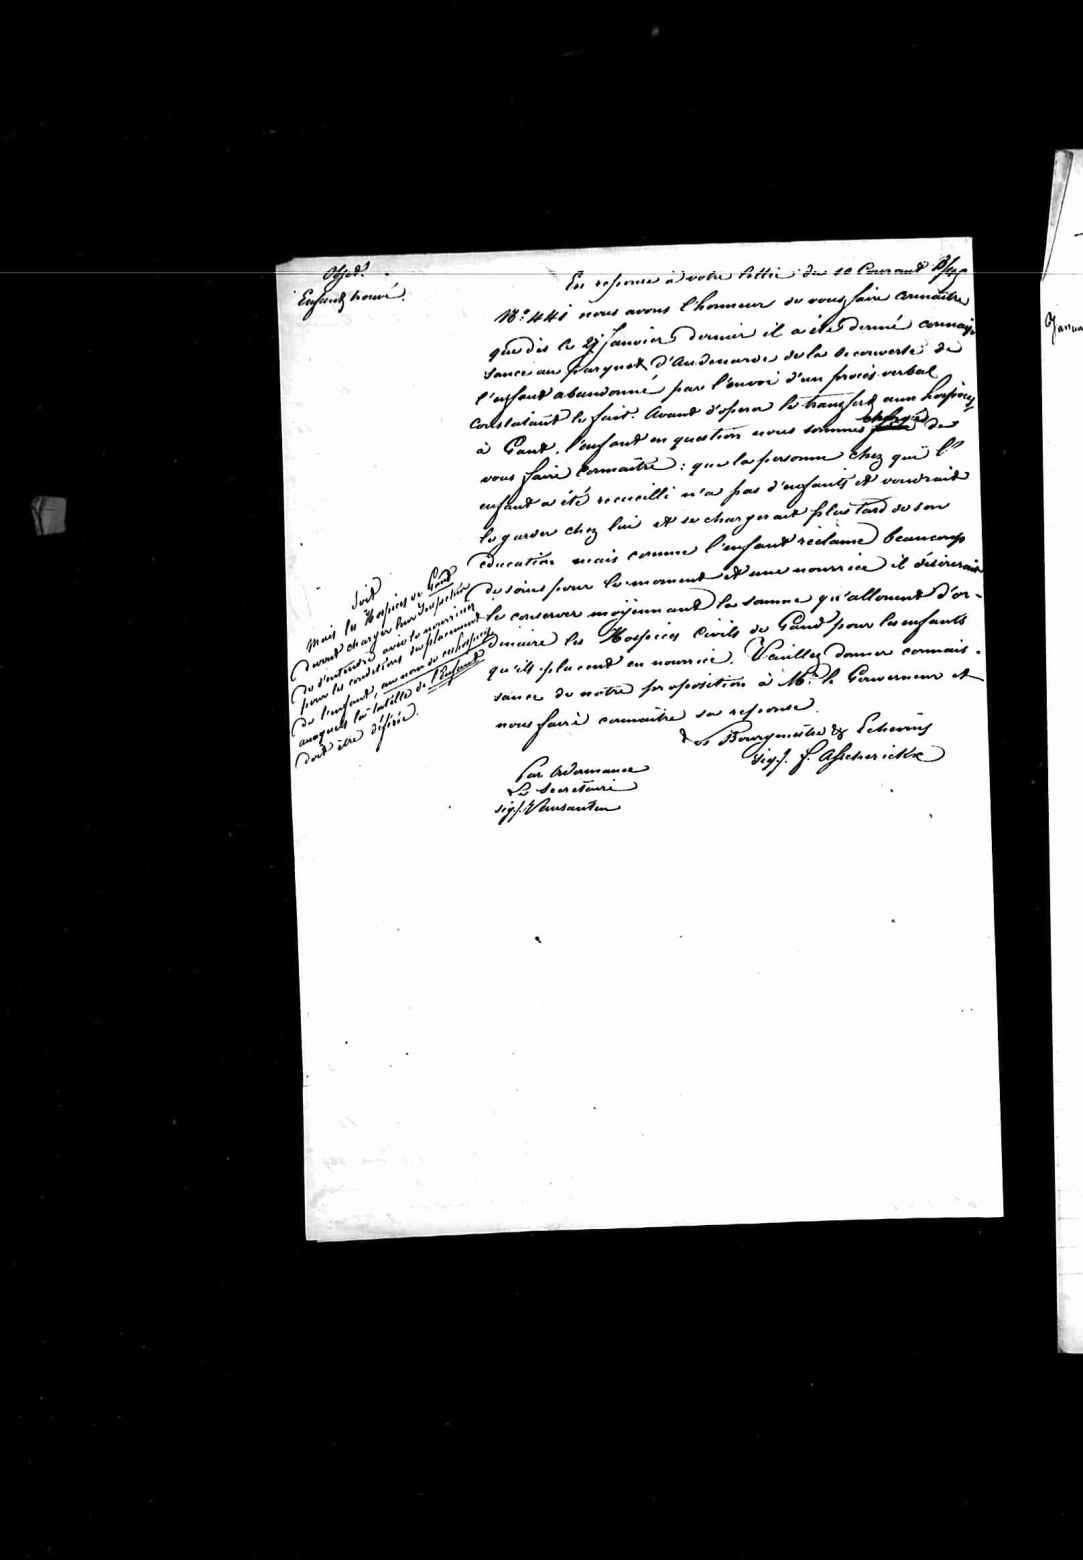 Objet.
Enfant trouvé.
En réponse à votre lettre du 10 Courant
N.º 441 nous avons l'honneur de vous faire connaître
que dès le 27 Janvier dernier il a été donné connais
sance au parquet d'Audenarde de la découverte de
l'enfant abandonné par l'envoi d'un procès verbal
constatant le fait. Avant d'operer le transfert aux hospices
à Gand, l'enfant en question nous sommes chargé de
vous faire connaître : que la personne chez qui l'
enfant a été recueilli n'a pas d'enfants et voudrait
le garder chez lui et se chargerait plus tard de son
education mais comme l'enfant réclame beaucoup
de soins pour le moment et une nourrice il désirerait
le conserver moyennant la somme qu'allouent d'or-
dinaire les Hospices Civils de Gand pour les enfants
qu'ils placent en nourrice. Veuillez donner connais-
sance de notre proposition à Mr. le Gouverneur et
nous faire connaître sa reponse.
Les Bourgmestre & Echevins
sig/.
Par Ordonnance
Le Secretaire
sig/. Vansanten
Soit
Mais les Hospices de Gand
devront charger leur Inspecteur
de s'entendre avec le nourricier
pour les conditions du placement
de l'enfant, au nom de ces hospices
auxquels la tutelle de l'Enfant
doit être déférée.